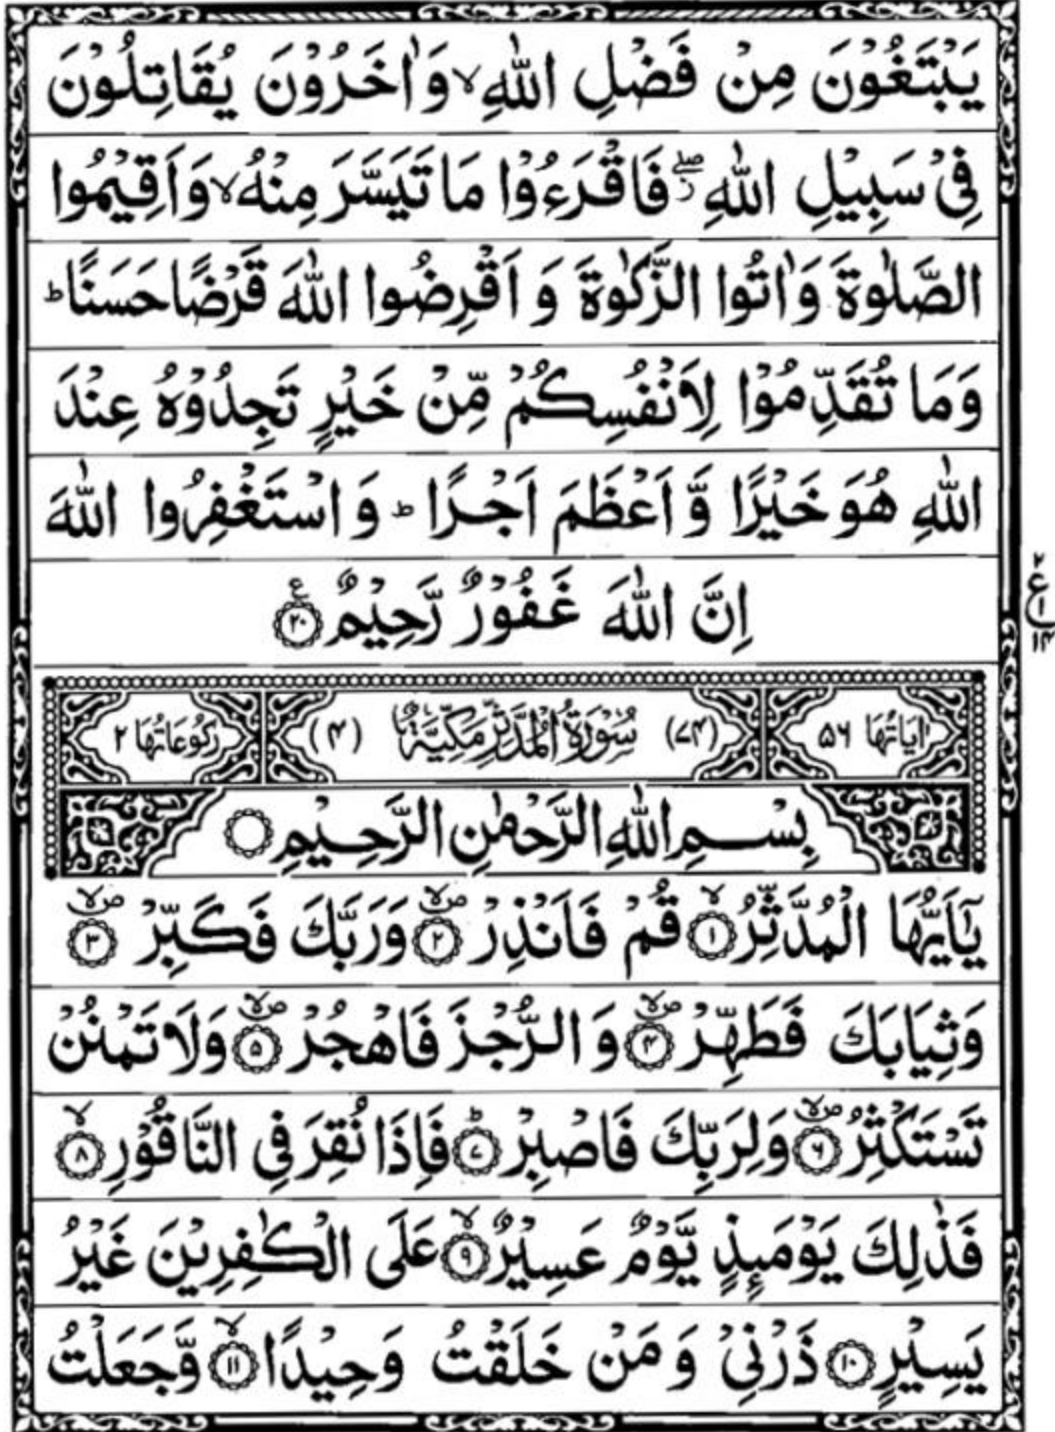 يَبْتَغُوْنَ مِنْ فَضْلِ اللّٰهِ ۙ وَاٰخَرُوْنَ يُقَاتِلُوْنَ
فِيْ سَبِيْلِ اللّٰهِ ۖ ز فَاقْرَءُوْا مَا تَيَسَّرَ مِنْهُ ۙ وَاَقِيْمُوا
الصَّلٰوةَ وَاٰتُوا الزَّكٰوةَ وَ اَقْرِضُوا اللّٰهَ قَرْضًا حَسَنًا ؕ
وَمَا تُقَدِّمُوْا لِاَنْفُسِكُمْ مِّنْ خَيْرٍ تَجِدُوْهُ عِنْدَ
اللّٰهِ هُوَ خَيْرًا وَّ اَعْظَمَ اَجْرًا ؕ وَ اسْتَغْفِرُوا اللّٰهَ
اِنَّ اللّٰهَ غَفُوْرٌ رَّحِيْمٌ ۲۰ ع
۲
ع
۱
۱۴
اٰيَاتُهَا ۵۶ (۷۴) سُوْرَةُ الْمُدَّثِّرِ مَكِّيَّةٌ (۴) رُكُوْعَاتُهَا ۲
بِسْمِ اللّٰهِ الرَّحْمٰنِ الرَّحِيْمِ
يٰۤاَيُّهَا الْمُدَّثِّرُ ۱ ۙ قُمْ فَاَنْذِرْ ۲ ۪ۙ وَرَبَّكَ فَكَبِّرْ ۳ ۪ۙ
وَثِيَابَكَ فَطَهِّرْ ۴ ۪ۙ وَ الرُّجْزَ فَاهْجُرْ ۵ ۪ۙ وَلَا تَمْنُنْ
تَسْتَكْثِرُ ۶ ۪ۙ وَلِرَبِّكَ فَاصْبِرْ ۷ ؕ فَاِذَا نُقِرَ فِي النَّاقُوْرِ ۸ ۙ
فَذٰلِكَ يَوْمَىِٕذٍ يَّوْمٌ عَسِيْرٌ ۹ ۙ عَلَى الْكٰفِرِيْنَ غَيْرُ
يَسِيْرٍ ۱۰ ذَرْنِيْ وَ مَنْ خَلَقْتُ وَحِيْدًا ۱۱ ۙ وَّجَعَلْتُ